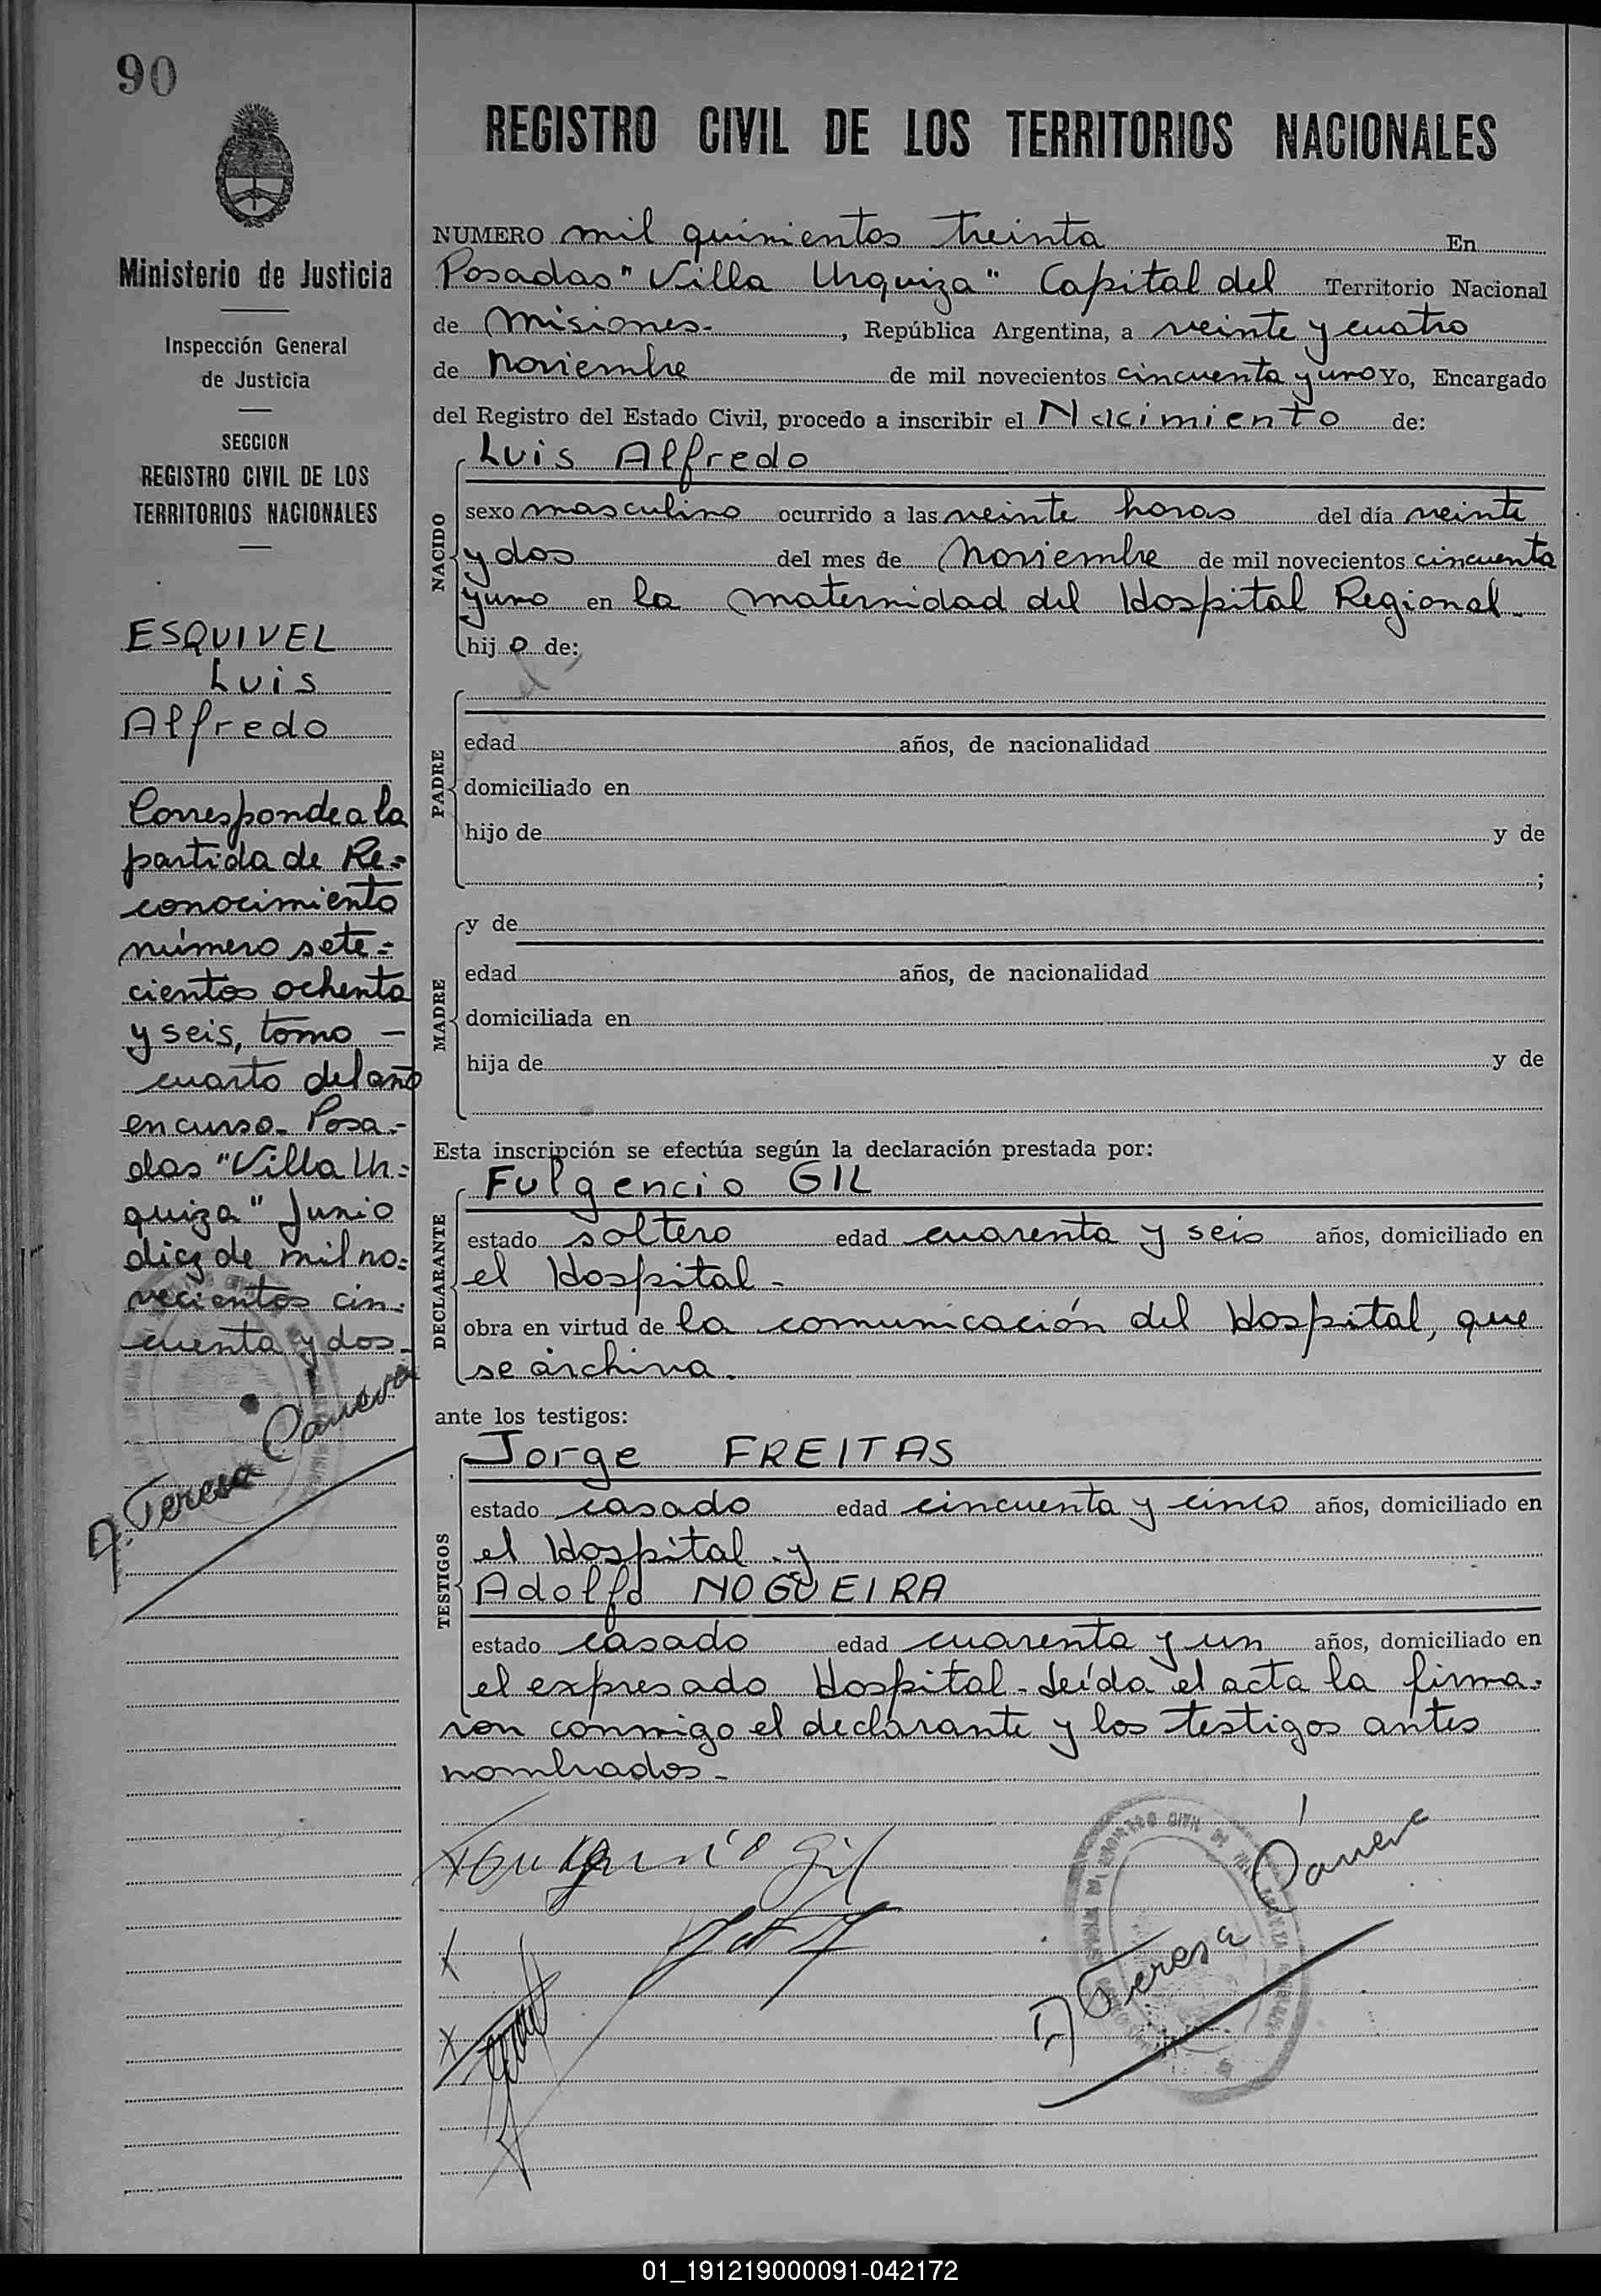 90
Ministerio de Justicia
Inspección General
de Justicia
SECCION
REGISTRO CIVIL DE LOS
TERRITORIOS NACIONALES
ESQUIVEL
Luis
Alfredo
Corresponde a la
partida de Re=
conocimiento
número sete=
cientos ochenta
y seis, tomo -
cuarto del año
en curso. Posa.-
das "Villa Ur=
quiza" Junio
diez de mil no=
vecientos cin=
cuenta y dos.
Teresa
REGISTRO CIVIL DE LOS TERRITORIOS NACIONALES
NUMERO mil quinientos treinta En
Posadas "Villa Urquiza" Capital del Territorio Nacional
de Misiones-, República Argentina, a veinte y cuatro
de noviembre de mil novecientos cincuenta y uno Yo, Encargado
del Registro del Estado Civil, procedo a inscribir el Nacimiento de:
NACIDO
Luis Alfredo
sexo masculino ocurrido a las veinte horas del día veinte
y dos del mes de Noviembre de mil novecientos cincuenta
y uno en la maternidad del Hospital Regional.
hijo de:
PADRE
edad años, de nacionalidad
domiciliado en
hijo de y de
;
MADRE
y de
edad años, de nacionalidad
domiciliada en
hija de y de
Esta inscripción se efectúa según la declaración prestada por:
DECLARANTE
Fulgencio GIL
estado soltero edad cuarenta y seis años, domiciliado en
el Hospital-
obra en virtud de la comunicación del Hospital, que
se archiva.
ante los testigos:
TESTIGOS
Jorge FREITAS
estado casado edad cincuenta y cinco años, domiciliado en
el Hospital y
Adolfo NOGUEIRA
estado casado edad cuarenta y un años, domiciliado en
el expresado Hospital- Leída el acta la firma=
ron conmigo el declarante y los testigos antes
nombrados-
Gil
Teresa
01_191219000091-042172